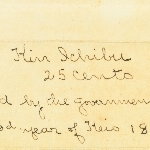 Kin Ichibu
25 cents
d by the governmen
od year of Keio 18